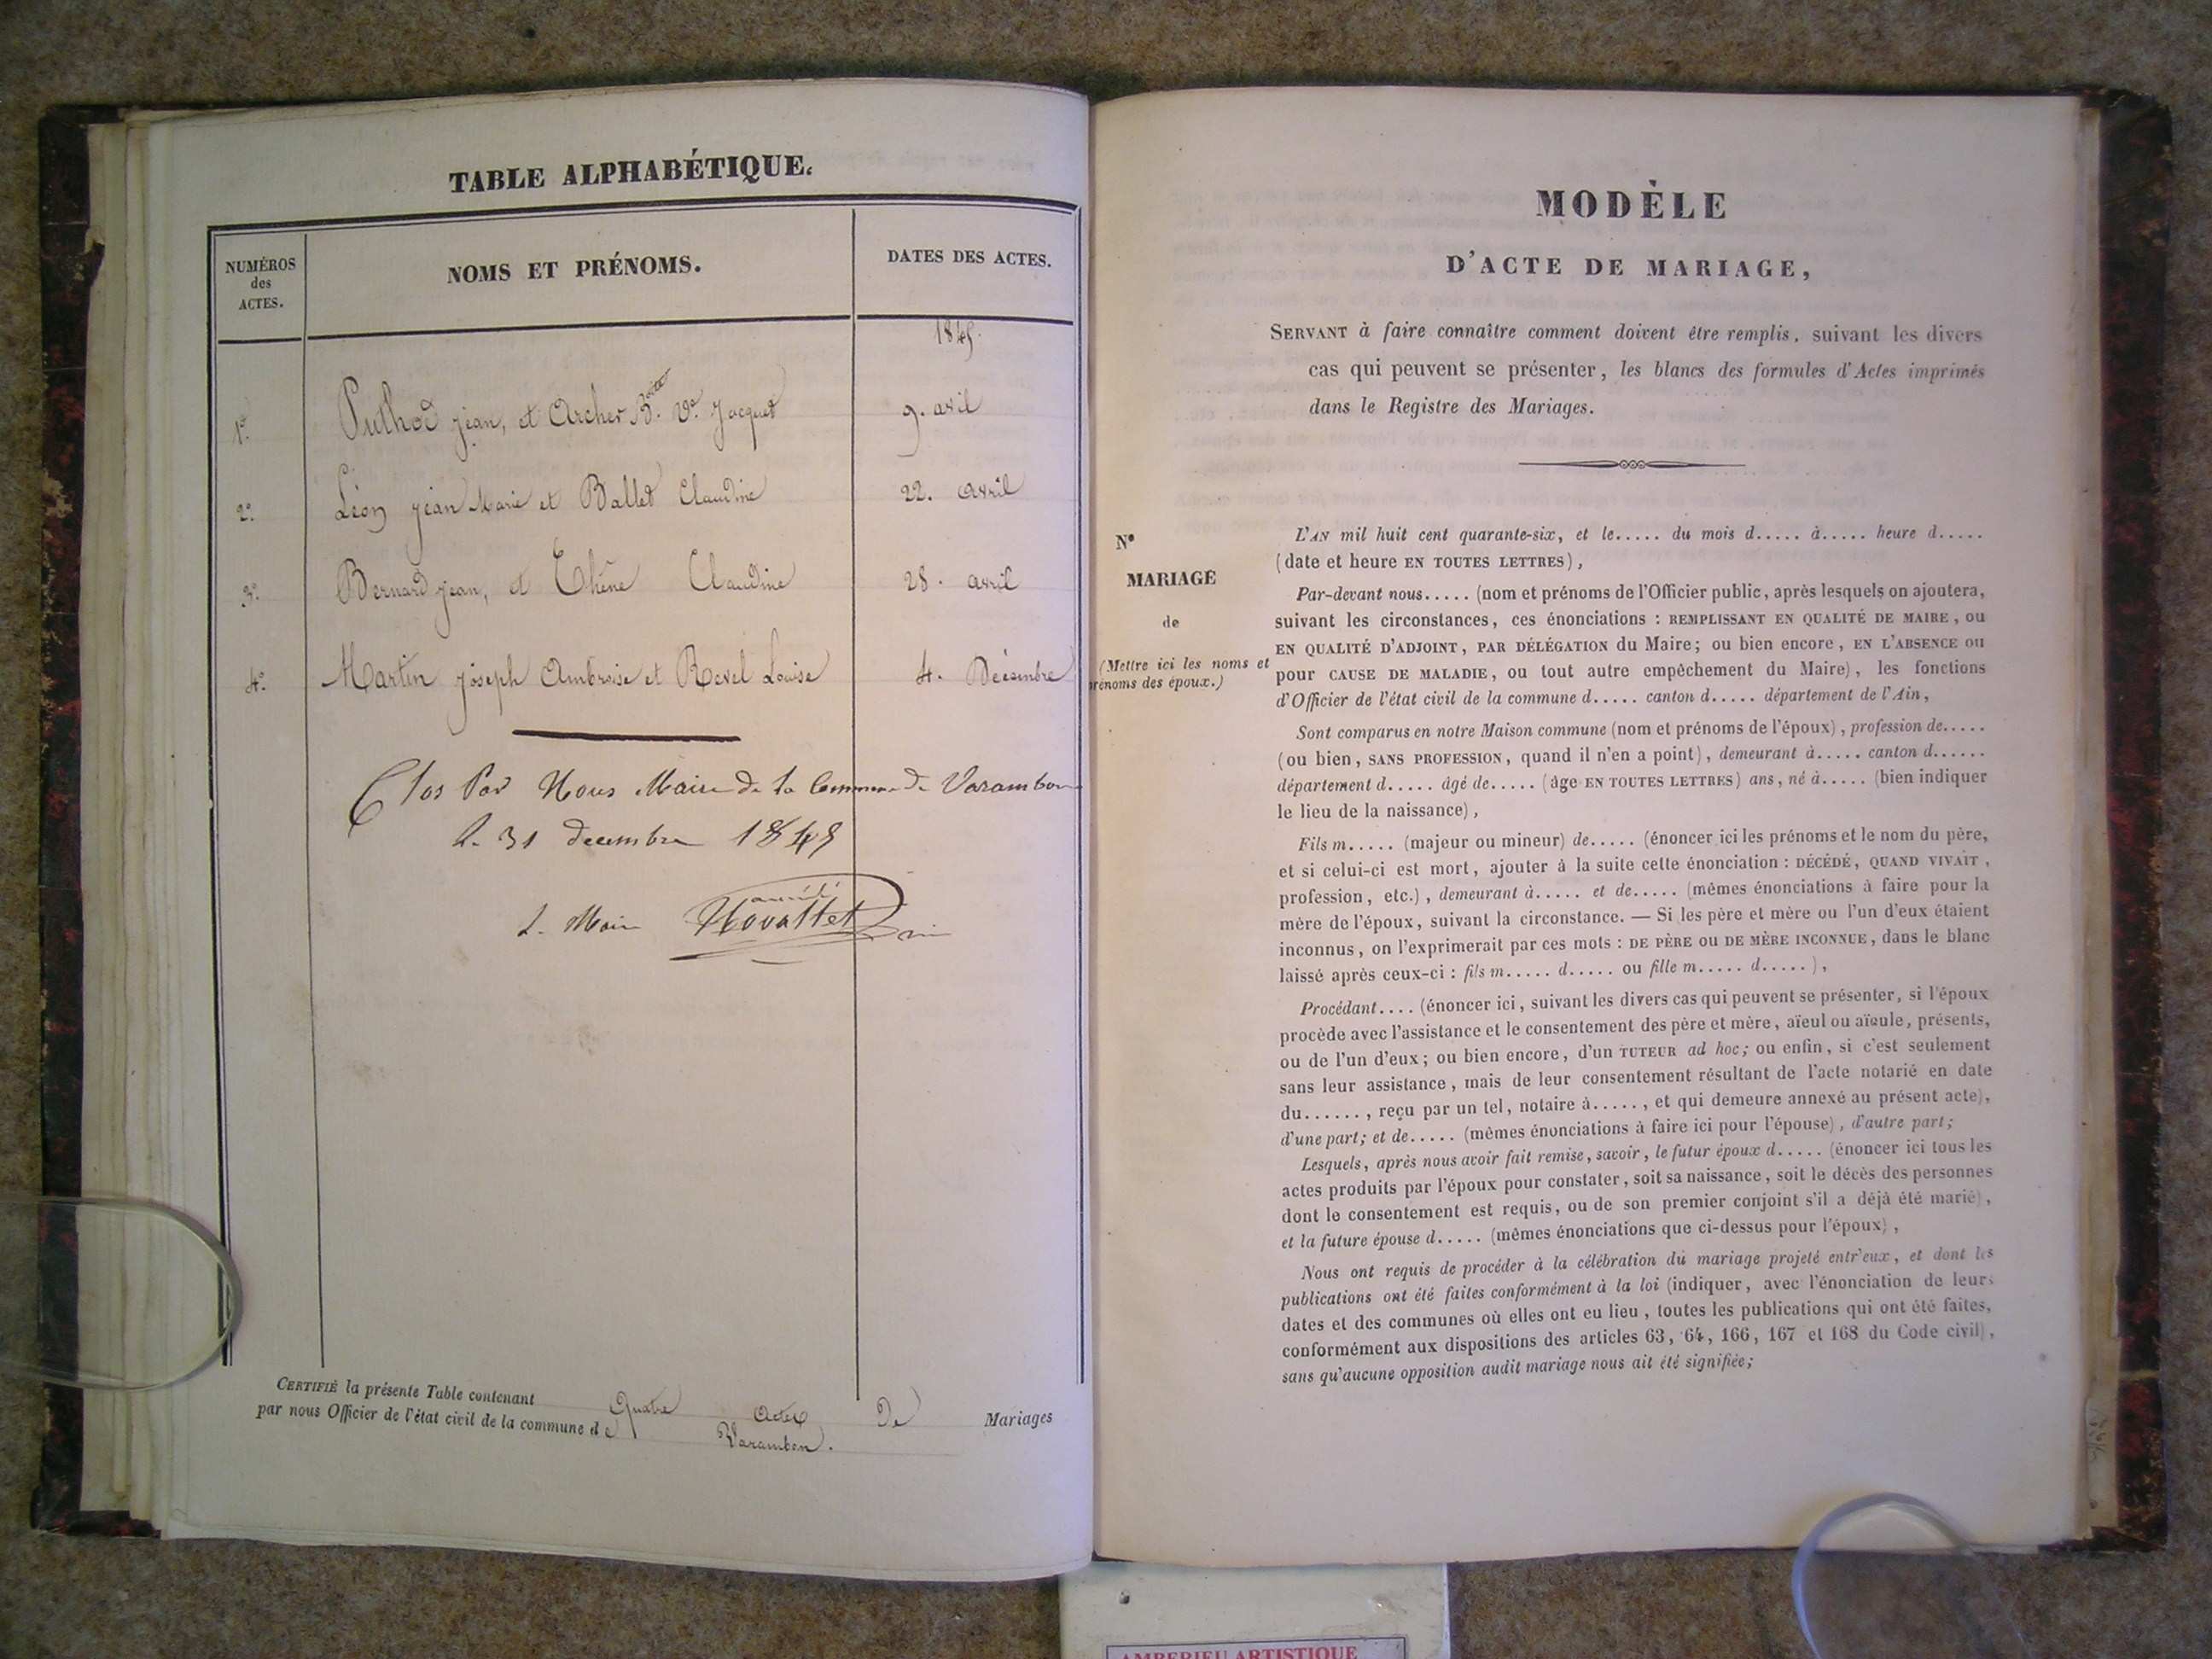 TABLE ALPHABÉTIQUE.
NUMÉROS
des
ACTES.
NOMS ET PRÉNOMS.
DATES DES ACTES.
1845.
1º. Puthod jean, et Archer B.te Ve. Jacquet 9. avril
2º. Léon jean Marie et Ballet Claudine 22. avril
3º. Bernard jean, et Thène Claudine 28. avril
4º. Martin joseph Ambroise et Revel Louise 4. Décembre
Clos Par Nous Maire de la Commune de Varambon
Le 31 decembre 1845
Le Maire
CERTIFIÉ la présente Table contenant Quatre Actes De Mariages
par nous Officier de l'état civil de la commune de Varambon.
MODÈLE
D'ACTE DE MARIAGE,
SERVANT à faire connaître comment doivent être remplis, suivant les divers
cas qui peuvent se présenter, les blancs des formules d'Actes imprimés
dans le Registre des Mariages.
Nº
MARIAGE
de
(Mettre ici les noms et
prénoms des époux.)
L'AN mil huit cent quarante-six, et le..... du mois d..... à..... heure d.....
(date et heure EN TOUTES LETTRES),
Par-devant nous..... (nom et prénoms de l'Officier public, après lesquels on ajoutera,
suivant les circonstances, ces énonciations : REMPLISSANT EN QUALITÉ DE MAIRE, ou
EN QUALITÉ D'ADJOINT, PAR DÉLÉGATION du Maire; ou bien encore, EN L'ABSENCE OU
pour CAUSE DE MALADIE, ou tout autre empêchement du Maire), les fonctions
d'Officier de l'état civil de la commune d..... canton d..... département de l'Ain,
Sont comparus en notre Maison commune (nom et prénoms de l'époux), profession de.....
(ou bien, SANS PROFESSION, quand il n'en a point), demeurant à..... canton d......
département d..... âgé de..... (âge EN TOUTES LETTRES) ans, né à..... (bien indiquer
le lieu de la naissance),
Fils m..... (majeur ou mineur) de..... (énoncer ici les prénoms et le nom du père,
et si celui-ci est mort, ajouter à la suite cette énonciation : DÉCÉDÉ, QUAND VIVAIT,
profession, etc.), demeurant à..... et de..... (mêmes énonciations à faire pour la
mère de l'époux, suivant la circonstance. — Si les père et mère ou l'un d'eux étaient
inconnus, on l'exprimerait par ces mots : DE PÈRE ou DE MÈRE INCONNUE, dans le blanc
laissé après ceux-ci : fils m..... d..... ou fille m..... d.....),
Procédant.... (énoncer ici, suivant les divers cas qui peuvent se présenter, si l'époux
procède avec l'assistance et le consentement des père et mère, aïeul ou aïeule, présents,
ou de l'un d'eux; ou bien encore, d'un TUTEUR ad hoc; ou enfin, si c'est seulement
sans leur assistance, mais de leur consentement résultant de l'acte notarié en date
du......, reçu par un tel, notaire à....., et qui demeure annexé au présent acte),
d'une part; et de..... (mêmes énonciations à faire ici pour l'épouse), d'autre part;
Lesquels, après nous avoir fait remise, savoir, le futur époux d..... (énoncer ici tous les
actes produits par l'époux pour constater, soit sa naissance, soit le décès des personnes
dont le consentement est requis, ou de son premier conjoint s'il a déjà été marié),
et la future épouse d..... (mêmes énonciations que ci-dessus pour l'époux),
Nous ont requis de procéder à la célébration du mariage projeté entr'eux, et dont les
publications ont été faites conformément à la loi (indiquer, avec l'énonciation de leurs
dates et des communes où elles ont eu lieu, toutes les publications qui ont été faites,
conformément aux dispositions des articles 63, 64, 166, 167 et 168 du Code civil),
sans qu'aucune opposition audit mariage nous ait été signifiée;
AMBERIEU ARTISTIQUE